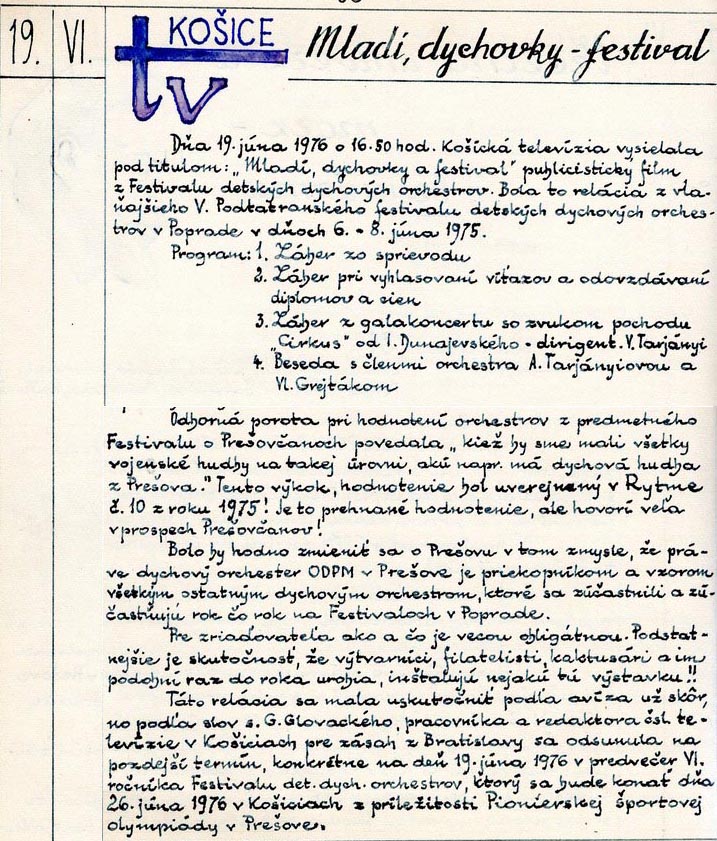 19. VI. KOŠICE tv Mladí, dychovky - festival
Dňa 19. júna 1976 o 16.50 hod. Košická televízia vysielala
pod titulom: „Mladí, dychovky a festival" publicistický film
z Festivalu detských dychových orchestrov. Bola to relácia z vla-
ňajšieho V. Podtatranského festivalu detských dychových orches-
trov v Poprade v dňoch 6. - 8. júna 1975.
Program: 1. Záber zo sprievodu
2. Záber pri vyhlasovaní víťazov a odovzdávaní
diplomov a cien
3. Záber z galakoncertu so zvukom pochodu
„Cirkus" od I. Dunajevského - dirigent. V. Tarjányi
4. Beseda s členmi orchestra A. Tarjányiovou a
Vl. Grejtákom
Odborná porota pri hodnotení orchestrov z predmetného
Festivalu o Prešovčanoch povedala „kiež by sme mali všetky
vojenské hudby na takej úrovni, akú napr. má dychová hudba
z Prešova." Tento výkok, hodnotenie bol uverejnený v Rytme
č. 10 z roku 1975! Je to prehnané hodnotenie, ale hovorí veľa
v prospech Prešovčanov!
Bolo by hodno zmieniť sa o Prešovu v tom zmysle, že prá-
ve dychový orchester ODPM v Prešove je priekopníkom a vzorom
všetkým ostatným dychovým orchestrom, ktoré sa zúčastnili a zú-
častňujú rok čo rok na Festivaloch v Poprade.
Pre zriaďovateľa ako a čo je vecou obligátnou. Podstat-
nejšie je skutočnosť, že výtvarníci, filatelisti, kaktusári a im
podobní raz do roka urobia, inštalujú nejakú tú výstavku!!
Táto relácia sa mala uskutočniť podľa avíza už skôr,
no podľa slov s. G. Glovackého, pracovníka a redaktora čsl. te-
levízie v Košiciach pre zásah z Bratislavy sa odsunula na
pozdejší termín, konkrétne na deň 19. júna 1976 v predvečer VI.
ročníka Festivalu det. dych. orchestrov, ktorý sa bude konať dňa
26. júna 1976 v Košiciach z príležitosti Pionierskej športovej
olympiády v Prešove.